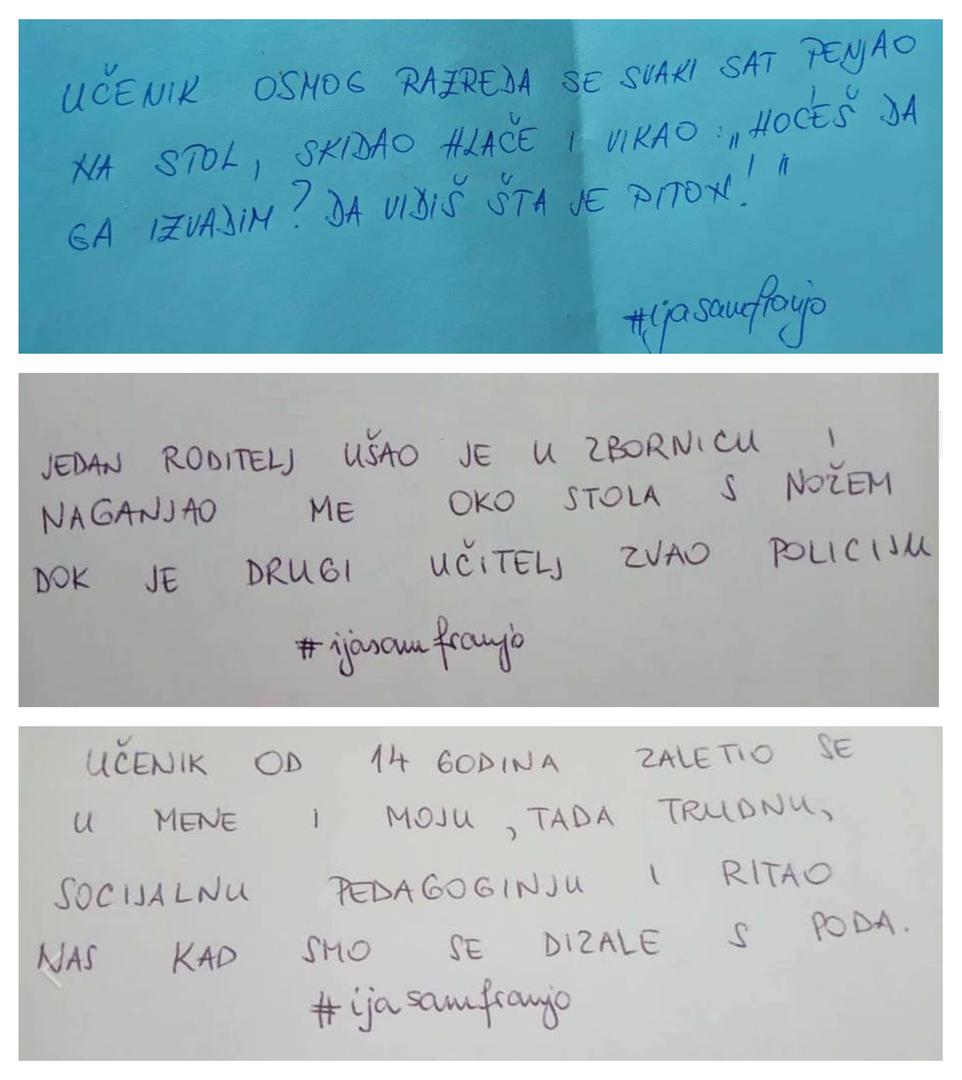 UČENIK OSMOG RAZREDA SE SVAKI SAT PENJAO
NA STOL, SKIDAO HLAČE I VIKAO: „HOĆEŠ DA
GA IZVADIM? DA VIDIŠ ŠTA JE PITON!"
#ijasamfranjo
JEDAN RODITELJ UŠAO JE U ZBORNICU I
NAGANJAO ME OKO STOLA S NOŽEM
DOK JE DRUGI UČITELJ ZVAO POLICIJU
#ijasamfranjo
UČENIK OD 14 GODINA ZALETIO SE
U MENE I MOJU, TADA TRUDNU,
SOCIJALNU PEDAGOGINJU I RITAO
NAS KAD SMO SE DIZALE S PODA.
#ijasamfranjo